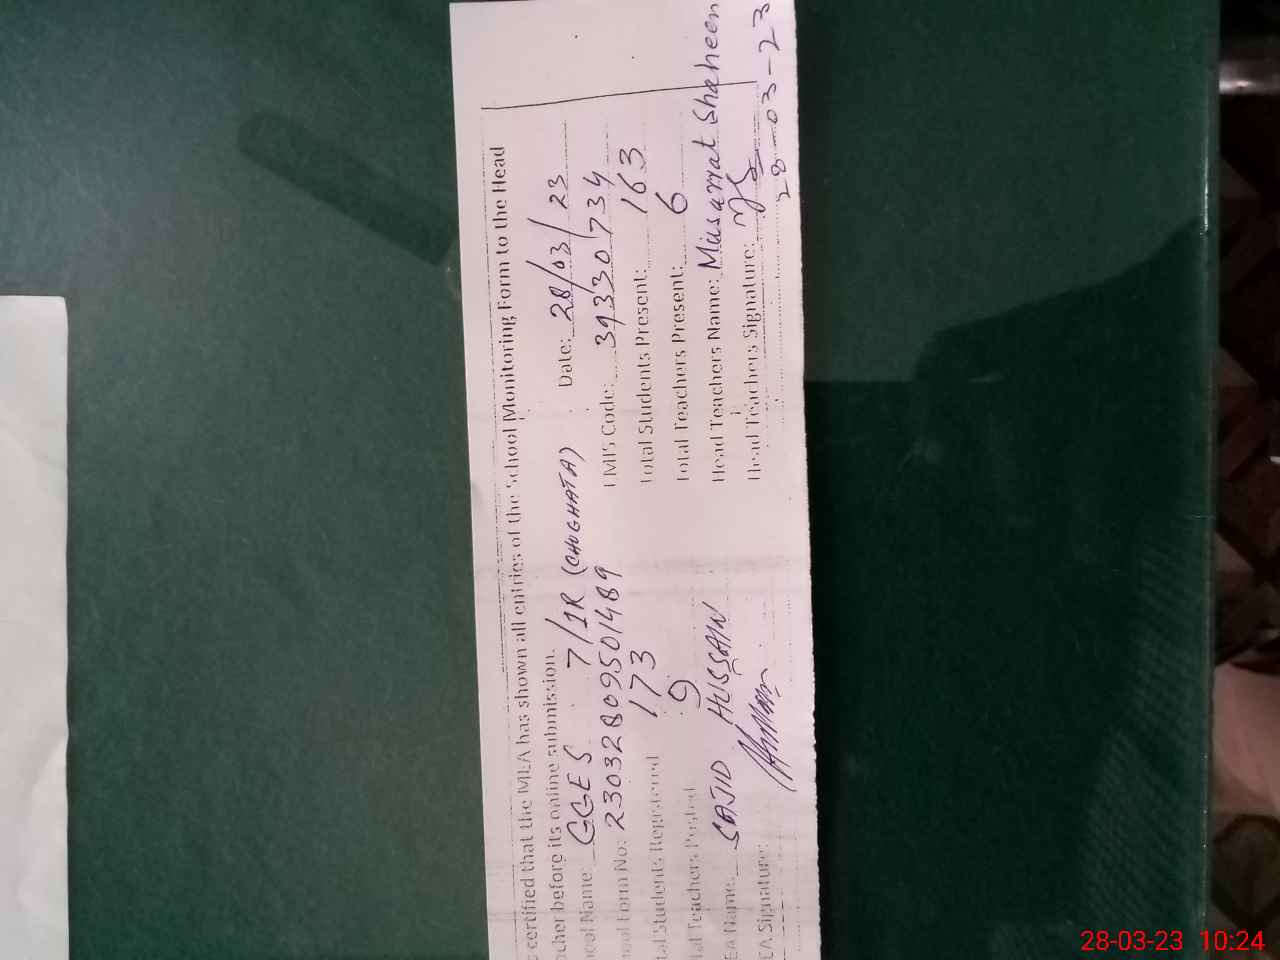 certified that the MEA has shown all entries of the School Monitoring Form to the Head
cher before its online submission.
ool Name: GGES 7/1R (CHUGHATA) Date: 28/03/23
ool Form No: 23032809501489 EMIS Code: 39330734
tal Students Registered 173 Total Students Present: 163
tal Teachers Posted 9 Total Teachers Present: 6
EA Name: SAJID HUSSAIN Head Teachers Name: Musarrat Shaheen
EA Signature: Head Teachers Signature:
28-03-23
28-03-23 10:24